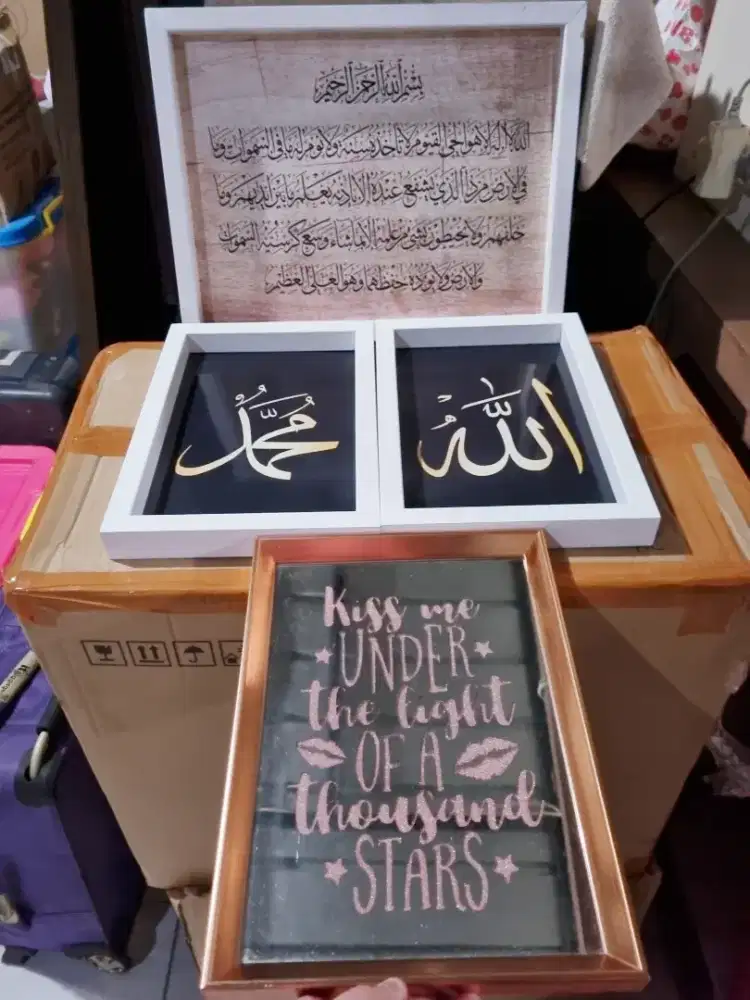 بسم الله الرحمن الرحيم
الله لا إله إلا هو الحي القيوم لا تأخذه سنة ولا نوم له ما في السموات وما
في الارض من ذا الذي يشفع عنده الا باذنه يعلم ما بين ايديهم وما
خلفهم ولا يحيطون بشيء من علمه الا بما شاء وسع كرسيه السموات
والارض ولا يؤده حفظهما وهو العلي العظيم
الله
محمد
Kiss me
UNDER
the light
OF A
thousand
STARS